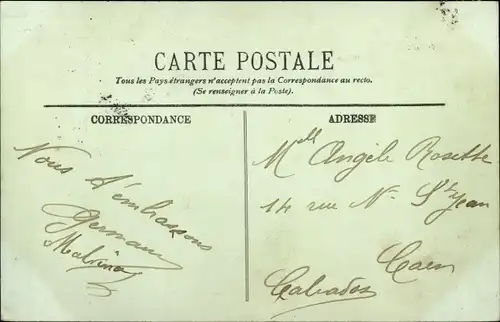 CARTE POSTALE
Tous les Pays étrangers n'acceptent pas la Correspondance au recto.
(Se renseigner à la Poste).
CORRESPONDANCE
Nous t'embrassons
Germain
ADRESSE
Melle Angèle Rosette
14 rue Ne St Jean
Caen
Calvados